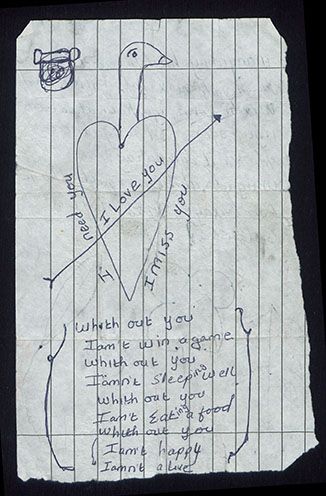 I need you
I Love you
I miss you
Whith out you
I am't win a game
Whith out you
I amn't sleeping well
whith out you
I an't Eating a food
Whith out you
I amn't happy
I amn't alive